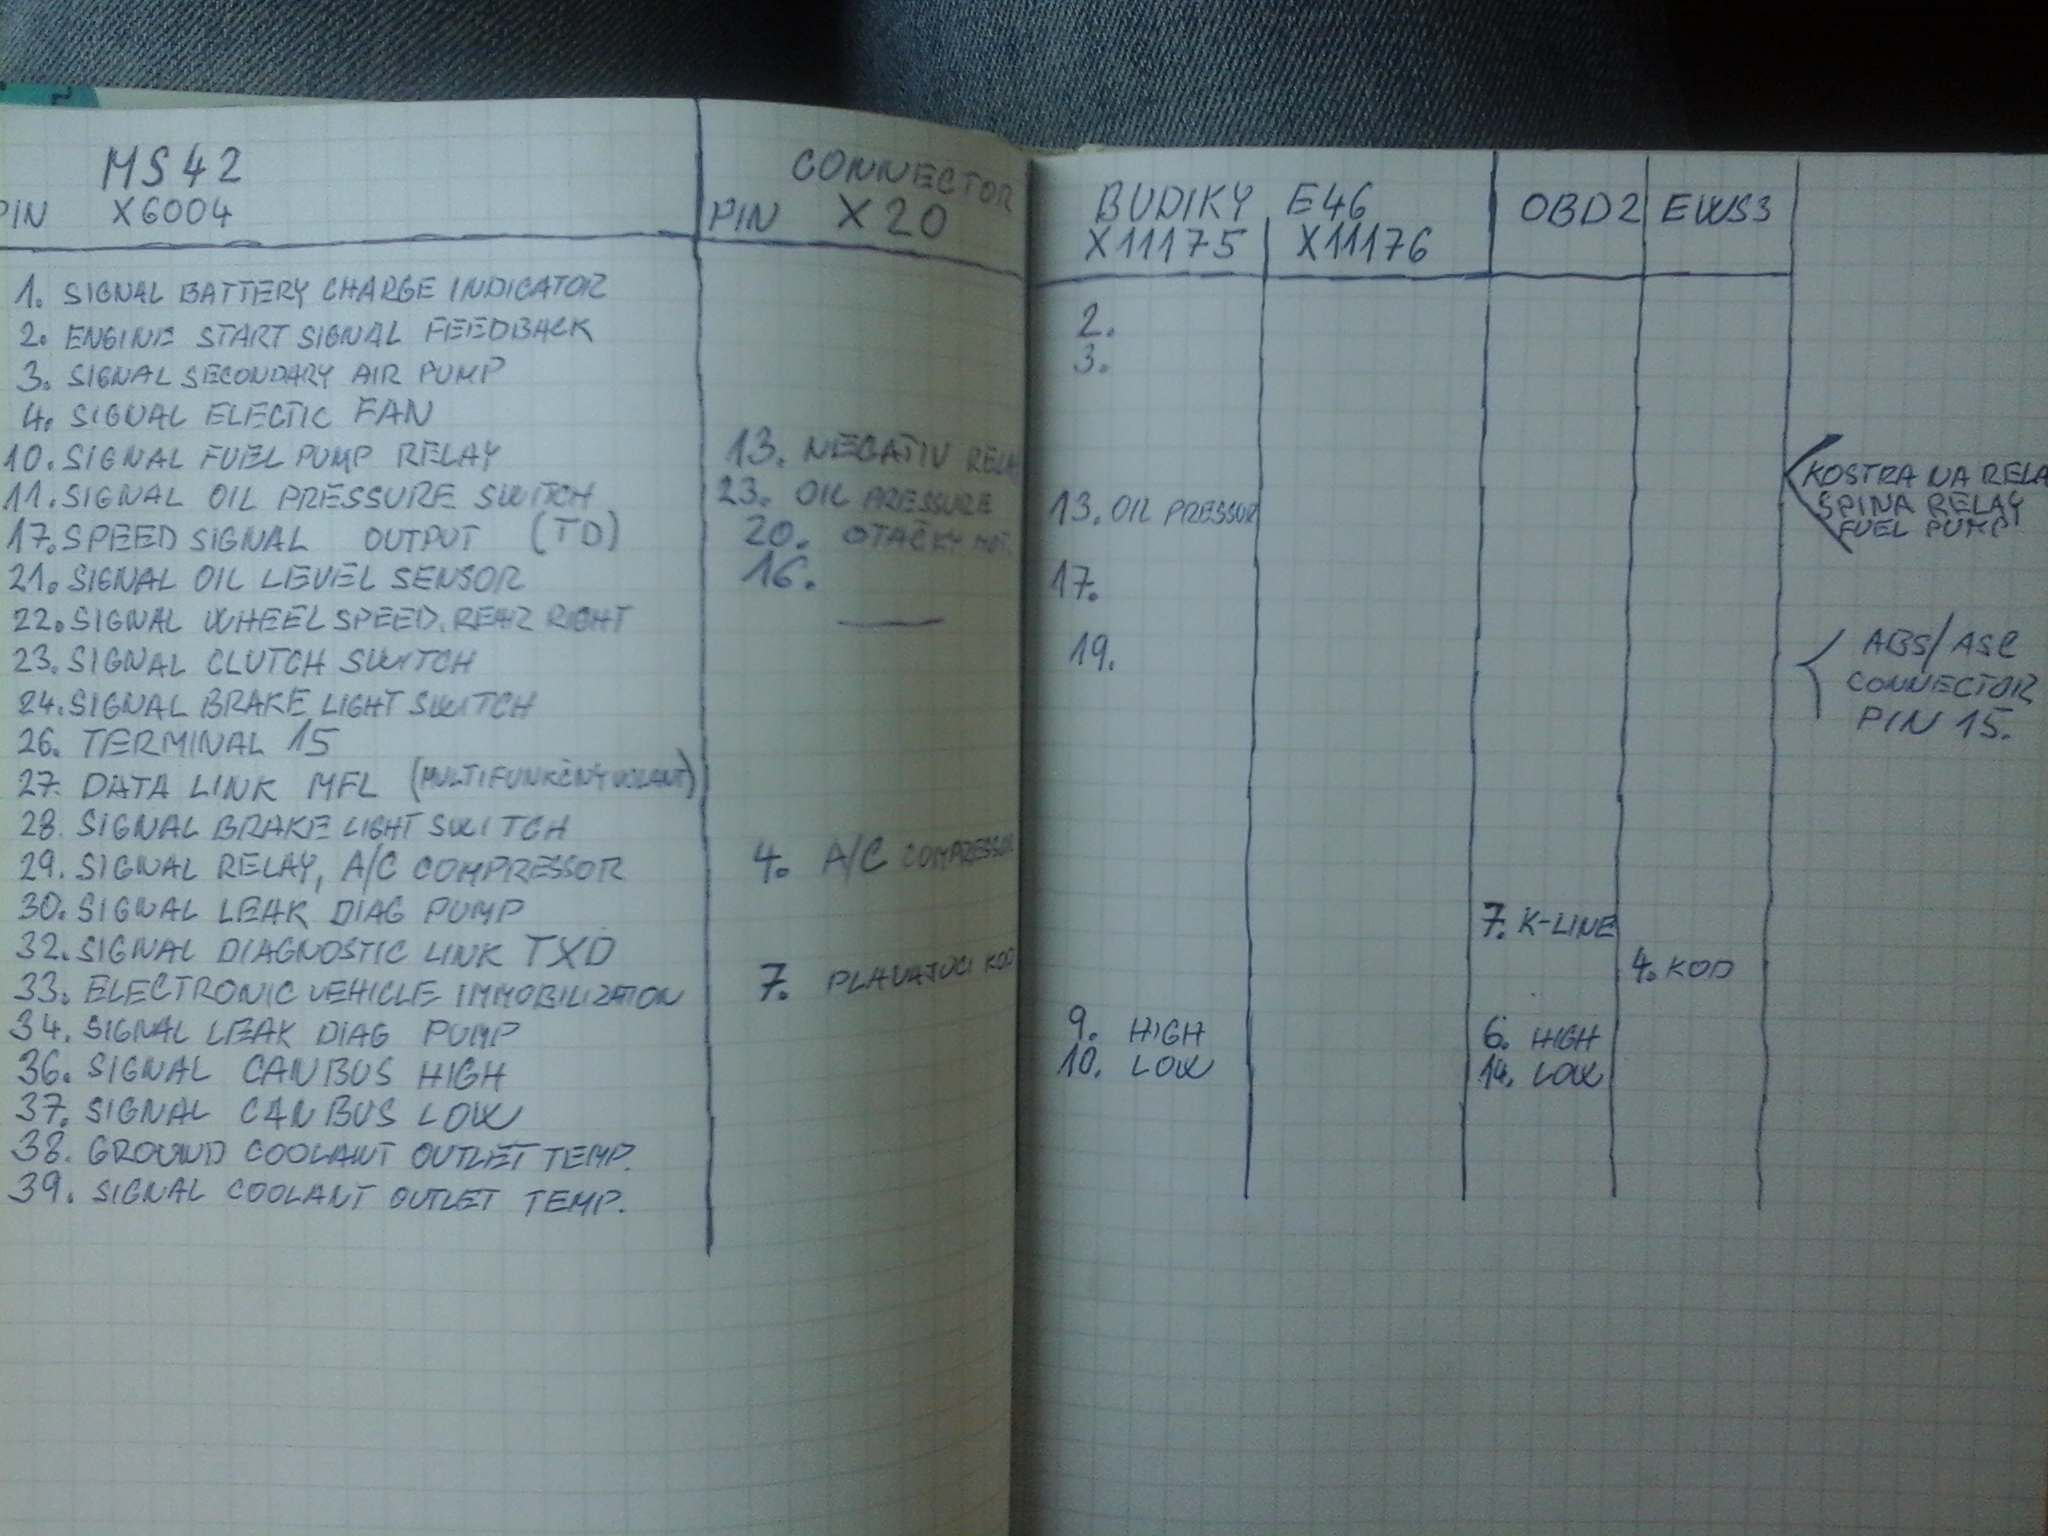 MS42
PIN X6004
1. SIGNAL BATTERY CHARGE INDICATOR
2. ENGINE START SIGNAL FEEDBACK
3. SIGNAL SECONDARY AIR PUMP
4. SIGNAL ELECTIC FAN
10. SIGNAL FUEL PUMP RELAY
11. SIGNAL OIL PRESSURE SWITCH
17. SPEED SIGNAL OUTPUT (TD)
21. SIGNAL OIL LEVEL SENSOR
22. SIGNAL WHEEL SPEED. REAR RIGHT
23. SIGNAL CLUTCH SWITCH
24. SIGNAL BRAKE LIGHT SWITCH
26. TERMINAL 15
27. DATA LINK MFL (MULTIFUNKČNÝ VOLANT)
28. SIGNAL BRAKE LIGHT SWITCH
29. SIGNAL RELAY, A/C COMPRESSOR
30. SIGNAL LEAK DIAG PUMP
32. SIGNAL DIAGNOSTIC LINK TXD
33. ELECTRONIC VEHICLE IMMOBILIZATION
34. SIGNAL LEAK DIAG PUMP
36. SIGNAL CAN BUS HIGH
37. SIGNAL CAN BUS LOW
38. GROUND COOLANT OUTLET TEMP.
39. SIGNAL COOLANT OUTLET TEMP.
CONNECTOR
PIN X20
13. NEGATIV RELA
23. OIL PRESSURE
20. OTAČKY MOT.
16.
—
4. A/C COMPRESSOR
7. PLAVAJUCI KOD
BUDIKY E46
X11175 X11176
2.
3.
13. OIL PRESSUR
17.
19.
9. HIGH
10. LOW
OBD2
7. K-LINE
6. HIGH
14. LOW
EWS3
4. KOD
KOSTRA NA RELA
SPINA RELAY
FUEL PUMP
ABS/ASC
CONNECTOR
PIN 15.